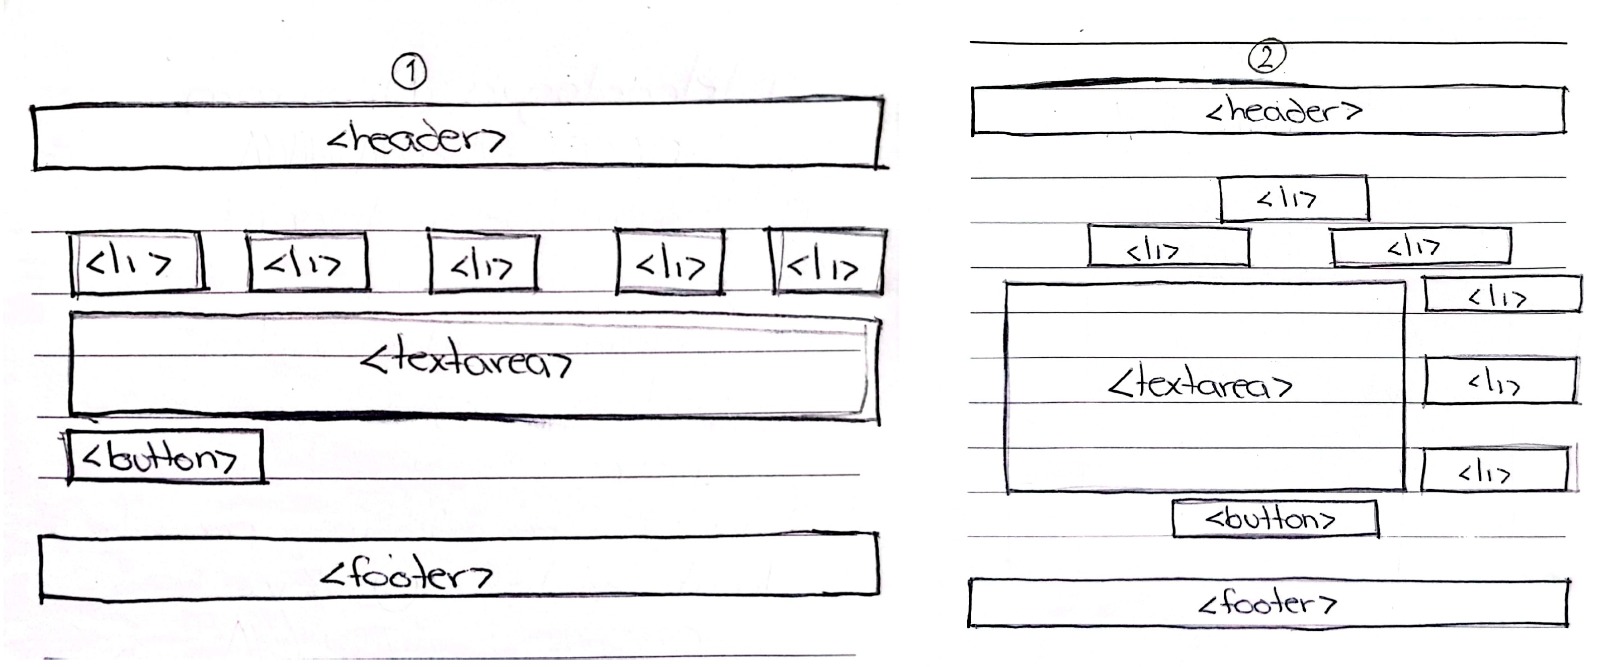 1
<header>
<li> <li> <li> <li> <li>
<textarea>
<button>
<footer>
2
<header>
<li>
<li> <li>
<li>
<textarea> <li>
<li>
<button>
<footer>